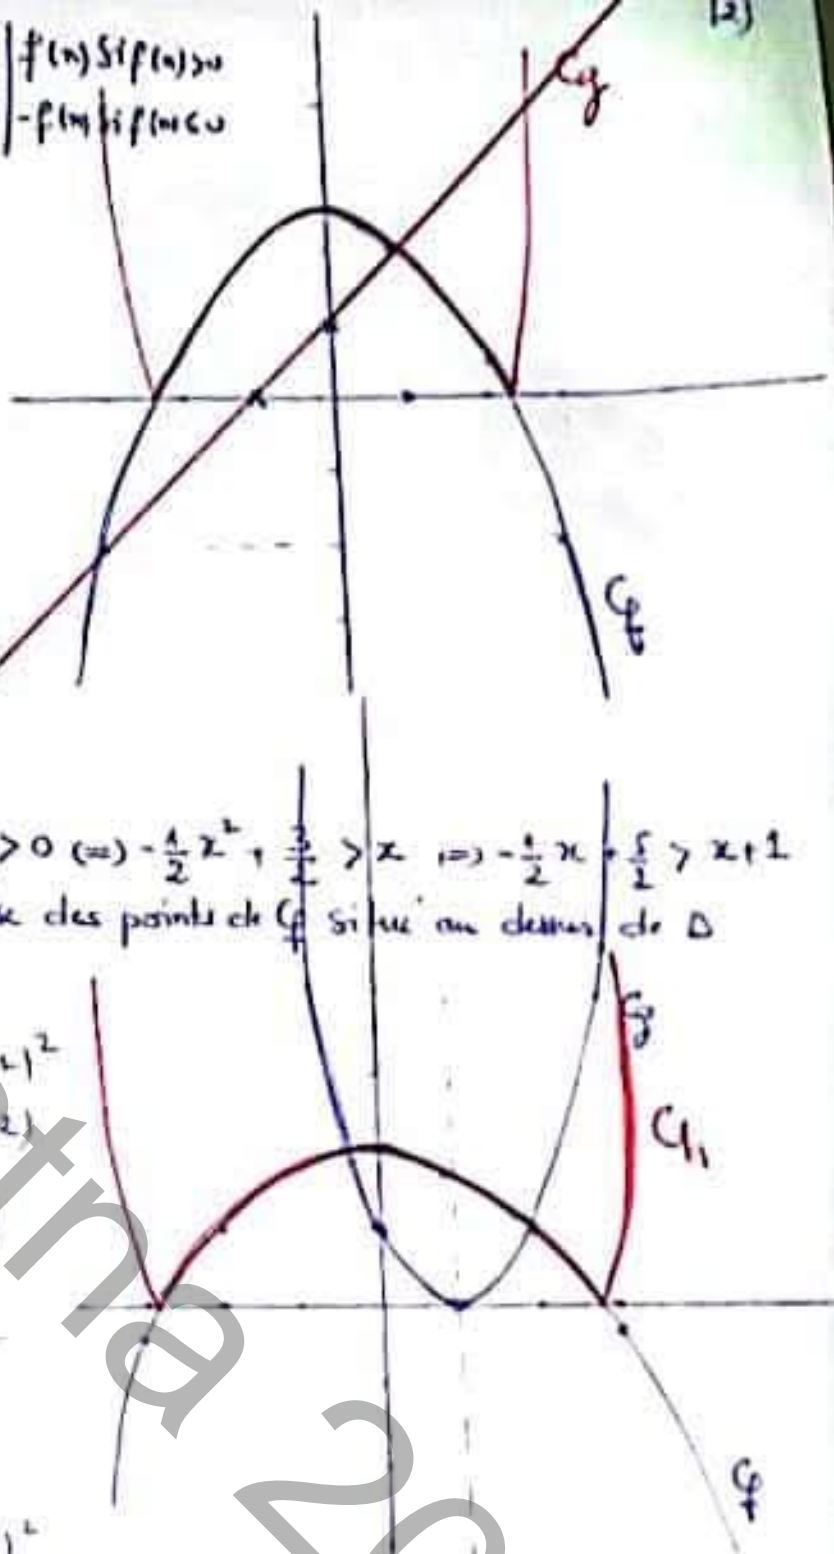 (2)
f(x) si f(x)>0
-f(x) si f(x)<0
Cg
Cf
>0 (=) -1/2 x² + 3/2 > x (=) -1/2 x + 5/2 > x+1
des points de Cf situé au dessus de Δ
)²
2)
Cg
Cf₁
Cf
)²
etna 20